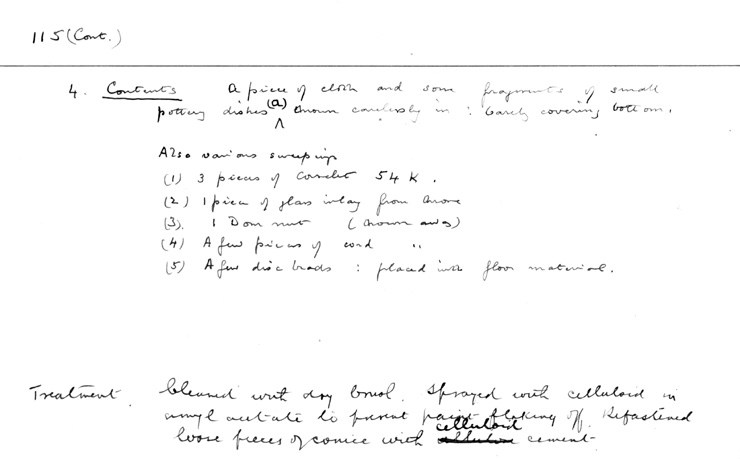 115 (Cont.)
4. Contents A piece of cloth and some fragments of small
pottery dishes (a) thrown carelessly in : barely covering bottom.
Also various sweepings
(1) 3 pieces of corselet 54 K.
(2) 1 piece of glass inlay from throne
(3). 1 Dom nut (thrown away)
(4) A few pieces of cord "
(5) A few disc beads : placed with floor material.
Treatment Cleaned with dry brush. Sprayed with celluloid in
amyl acetate to prevent paint flaking off. Refastened
loose pieces of cornice with celluloid cement